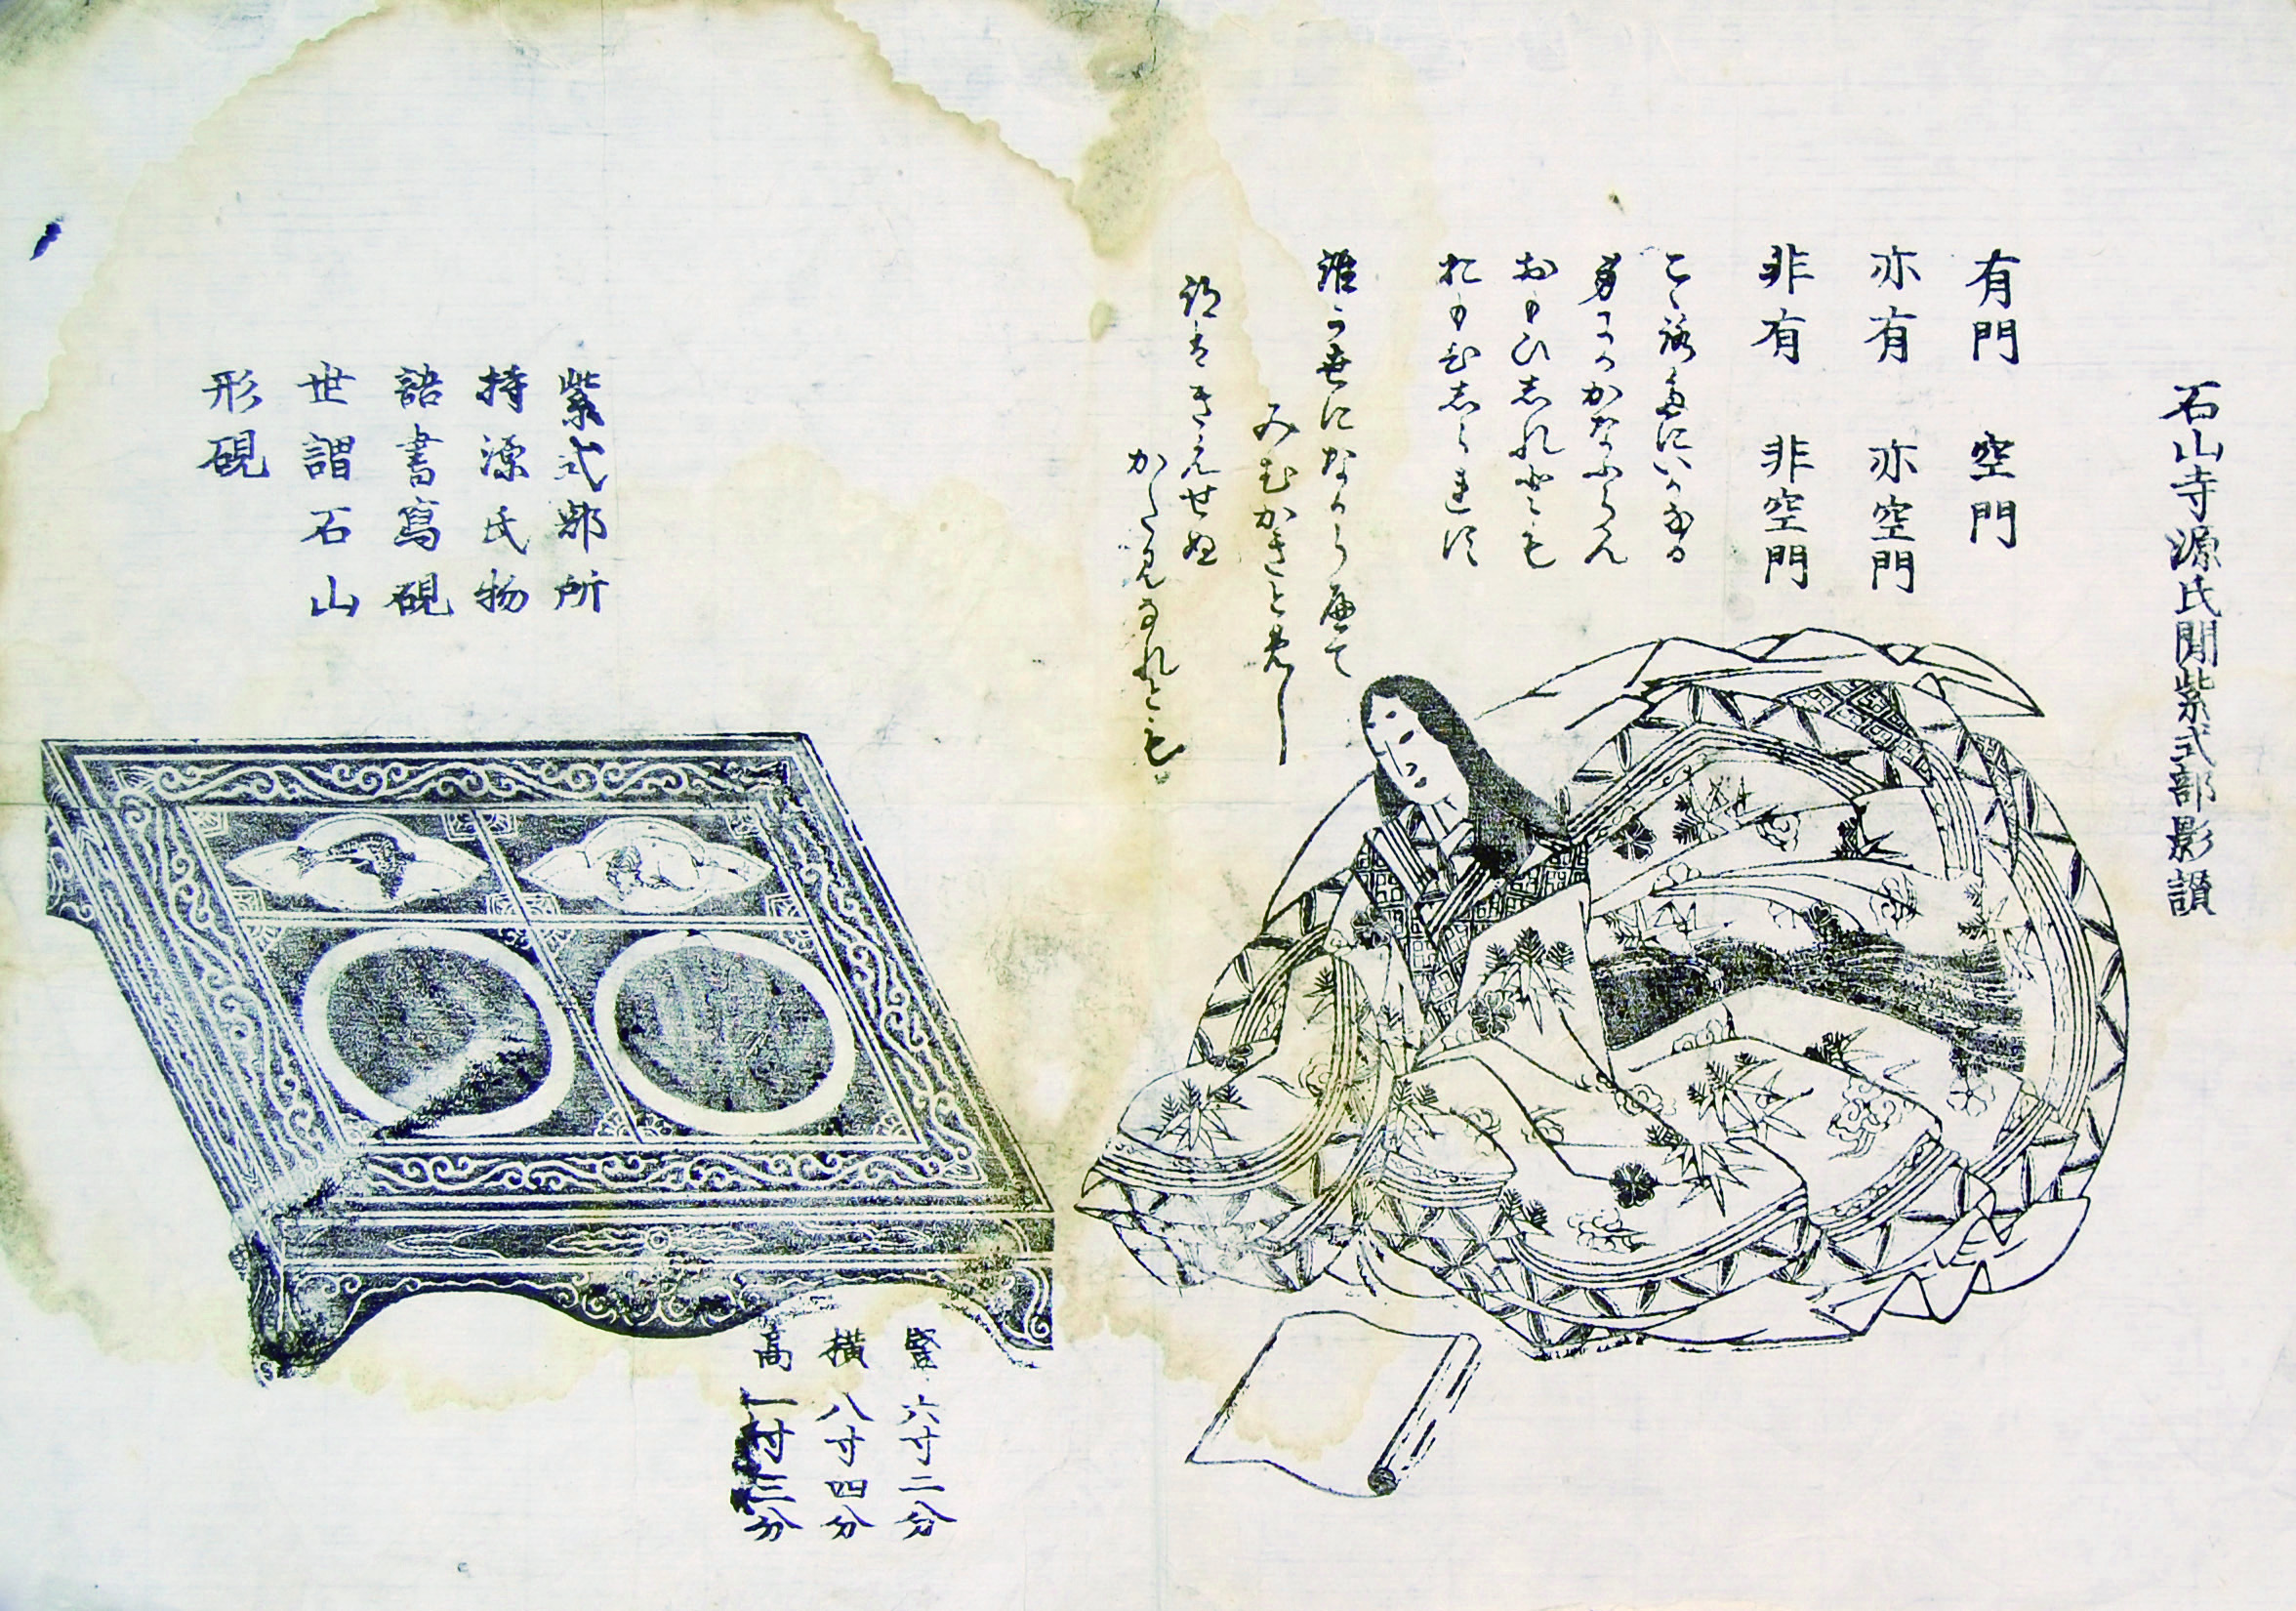 石山寺源氏閒紫式部影讃
有門　空門
亦有　亦空門
非有　非空門
こゝろたにいかなる
身にかかなふらん
おもひしれとも
おもひしられす
誰か世になからへて
みむかきとめし
跡はきえせぬ
かたみなれとも
紫式部所
持源氏物
語書寫硯
世謂石山
形硯
竪六寸二分
横八寸四分
高一寸三分